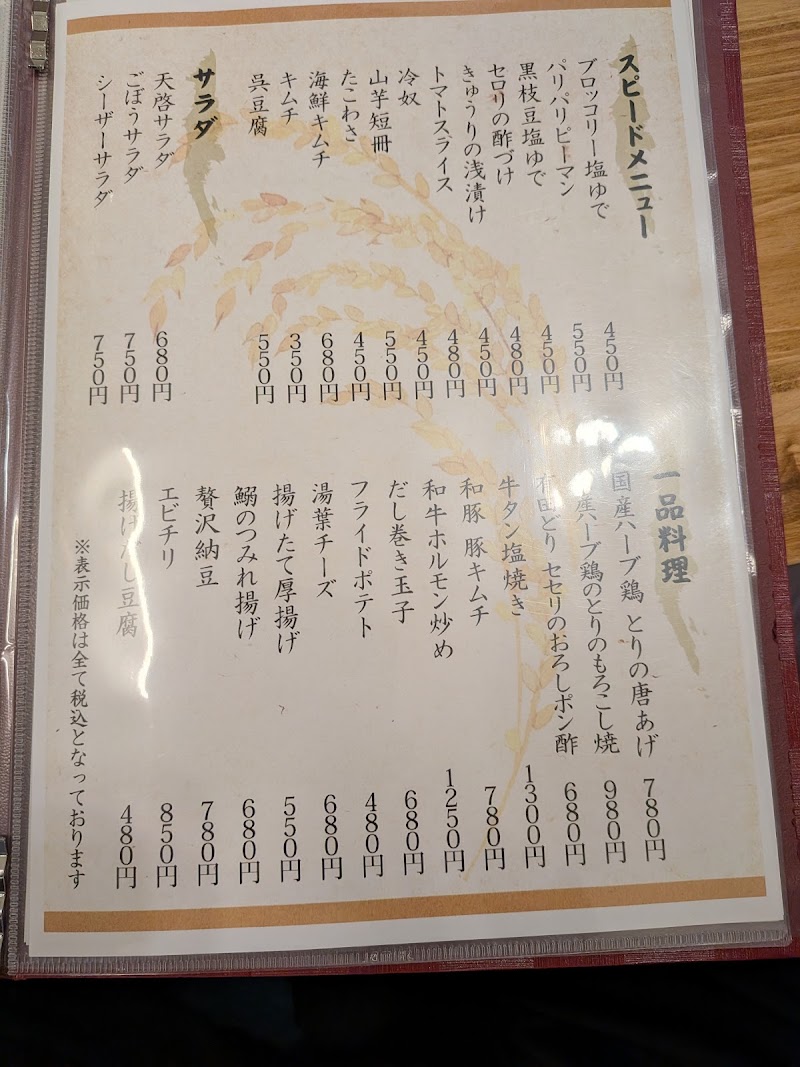 スピードメニュー
ブロッコリー塩ゆで 450円
パリパリピーマン 550円
黒枝豆塩ゆで 450円
セロリの酢づけ 480円
きゅうりの浅漬け 450円
トマトスライス 480円
冷奴 450円
山芋短冊 550円
たこわさ 450円
海鮮キムチ 680円
キムチ 350円
呉豆腐 550円
サラダ
天啓サラダ 680円
ごぼうサラダ 750円
シーザーサラダ 750円
一品料理
国産ハーブ鶏 とりの唐あげ 780円
産ハーブ鶏のとりのもろこし焼 980円
有田どり セセリのおろしポン酢 680円
牛タン塩焼き 1300円
和豚 豚キムチ 780円
和牛ホルモン炒め 1250円
だし巻き玉子 680円
フライドポテト 480円
湯葉チーズ 680円
揚げたて厚揚げ 550円
鰯のつみれ揚げ 680円
贅沢納豆 780円
エビチリ 850円
揚げだし豆腐 480円
※表示価格は全て税込となっております